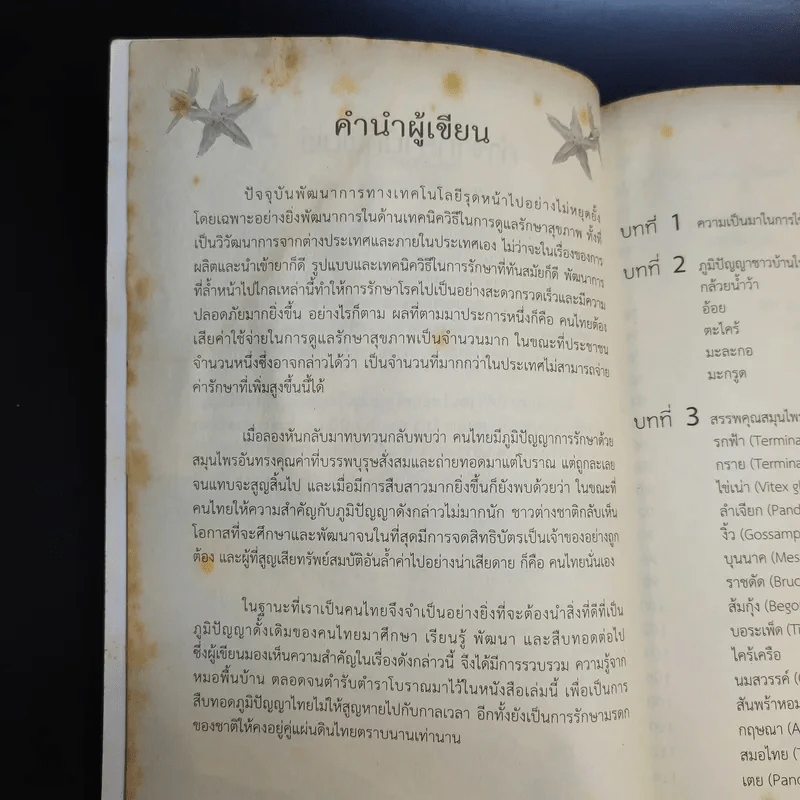 คำนำผู้เขียน
ปัจจุบันพัฒนาการทางเทคโนโลยีรุดหน้าไปอย่างไม่หยุดยั้ง
โดยเฉพาะอย่างยิ่งพัฒนาการในด้านเทคนิควิธีในการดูแลรักษาสุขภาพ ทั้งที่
เป็นวิวัฒนาการจากต่างประเทศและภายในประเทศเอง ไม่ว่าจะในเรื่องของการ
ผลิตและนำเข้ายาก็ดี รูปแบบและเทคนิควิธีในการรักษาที่ทันสมัยก็ดี พัฒนาการ
ที่ล้ำหน้าไปไกลเหล่านี้ทำให้การรักษาโรคไปเป็นอย่างสะดวกรวดเร็วและมีความ
ปลอดภัยมากยิ่งขึ้น อย่างไรก็ตาม ผลที่ตามมาประการหนึ่งก็คือ คนไทยต้อง
เสียค่าใช้จ่ายในการดูแลรักษาสุขภาพเป็นจำนวนมาก ในขณะที่ประชาชน
จำนวนหนึ่งซึ่งอาจกล่าวได้ว่า เป็นจำนวนที่มากกว่าในประเทศไม่สามารถจ่าย
ค่ารักษาที่เพิ่มสูงขึ้นนี้ได้
เมื่อลองหันกลับมาทบทวนกลับพบว่า คนไทยมีภูมิปัญญาการรักษาด้วย
สมุนไพรอันทรงคุณค่าที่บรรพบุรุษสั่งสมและถ่ายทอดมาแต่โบราณ แต่ถูกละเลย
จนแทบจะสูญสิ้นไป และเมื่อมีการสืบสาวมากยิ่งขึ้นก็ยังพบด้วยว่า ในขณะที่
คนไทยให้ความสำคัญกับภูมิปัญญาดังกล่าวไม่มากนัก ชาวต่างชาติกลับเห็น
โอกาสที่จะศึกษาและพัฒนาจนในที่สุดมีการจดสิทธิบัตรเป็นเจ้าของอย่างถูก
ต้อง และผู้ที่สูญเสียทรัพย์สมบัติอันล้ำค่าไปอย่างน่าเสียดาย ก็คือ คนไทยนั่นเอง
ในฐานะที่เราเป็นคนไทยจึงจำเป็นอย่างยิ่งที่จะต้องนำสิ่งที่ดีที่เป็น
ภูมิปัญญาดั้งเดิมของคนไทยมาศึกษา เรียนรู้ พัฒนา และสืบทอดต่อไป
ซึ่งผู้เขียนมองเห็นความสำคัญในเรื่องดังกล่าวนี้ จึงได้มีการรวบรวม ความรู้จาก
หมอพื้นบ้าน ตลอดจนตำรับตำราโบราณมาไว้ในหนังสือเล่มนี้ เพื่อเป็นการ
สืบทอดภูมิปัญญาไทยไม่ให้สูญหายไปกับกาลเวลา อีกทั้งยังเป็นการรักษามรดก
ของชาติให้คงอยู่คู่แผ่นดินไทยตราบนานเท่านาน
บทที่ 1 ความเป็นมาในการใ
บทที่ 2 ภูมิปัญญาชาวบ้านใ
กล้วยน้ำว้า
อ้อย
ตะไคร้
มะละกอ
มะกรูด
บทที่ 3 สรรพคุณสมุนไพร
รกฟ้า (Termina
กราย (Termina
ไข่เน่า (Vitex g
ลำเจียก (Pand
งิ้ว (Gossamp
บุนนาค (Mes
ราชดัด (Bruc
ส้มกุ้ง (Bego
บอระเพ็ด (Ti
ไคร้เครือ
นมสวรรค์ (
สันพร้าหอม
กฤษณา (A
สมอไทย (T
เตย (Pand